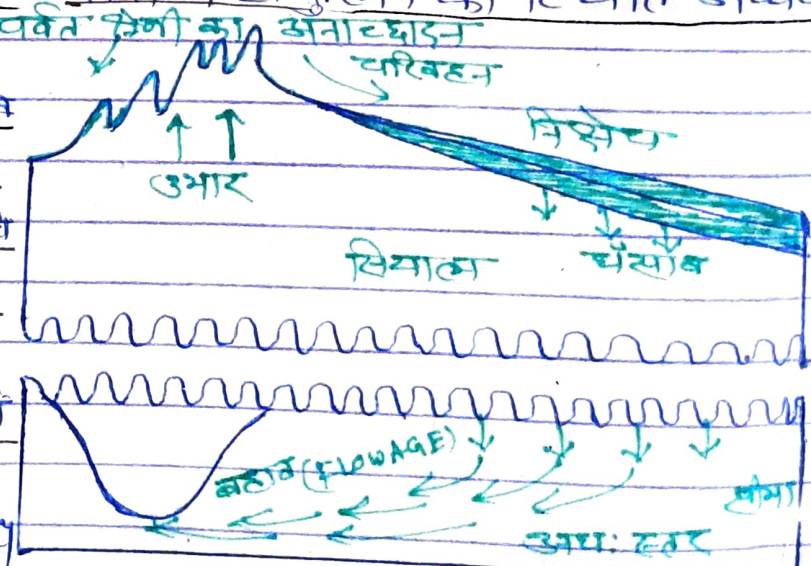 पर्वत श्रेणी का अनाच्छादन
परिवहन
निक्षेप
उभार
सियाल धँसाव
बहाव (FLOWAGE)
सीमा
अधः स्तर